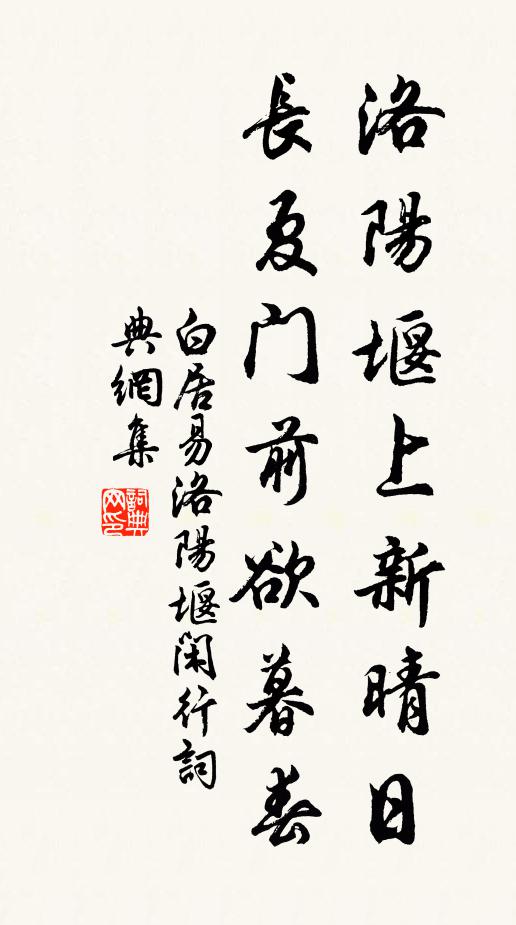 洛陽堰上新晴日
長夏門前欲暮春
白居易洛陽堰閑行詞
典網集
詞典网印